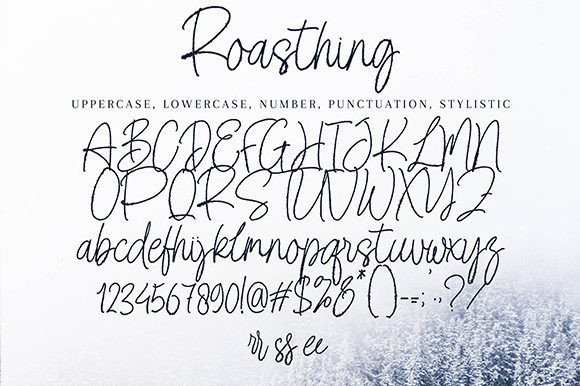 Roasthing
UPPERCASE, LOWERCASE, NUMBER, PUNCTUATION, STYLISTIC
ABCDEFGHIJKLMN
OPQRSTUVWXYZ
abcdefhijklmnopqrstuvwxyz
1234567890!@#$%&*()-=;',.,?/
rr ss ee